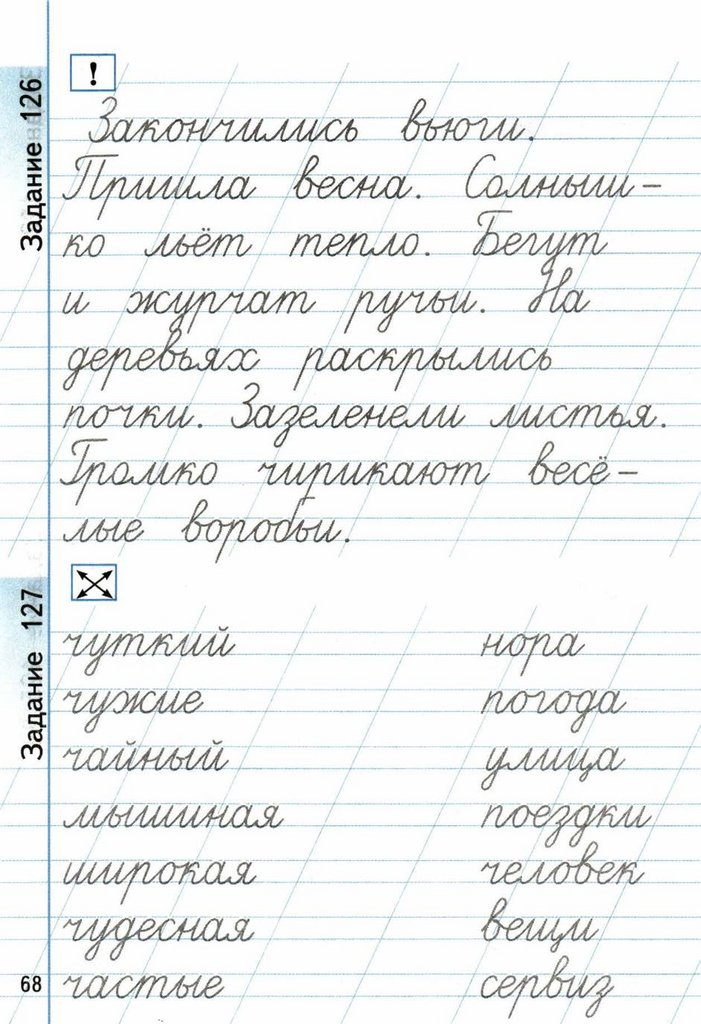 Задание 126
!
Закончились вьюги.
Пришла весна. Солныш-
ко льёт тепло. Бегут
и журчат ручьи. На
деревьях раскрылись
почки. Зазеленели листья.
Громко чирикают весё-
лые воробьи.
Задание 127
чуткий нора
чужие погода
чайный улица
мышиная поездки
широкая человек
чудесная вещи
частые сервиз
68